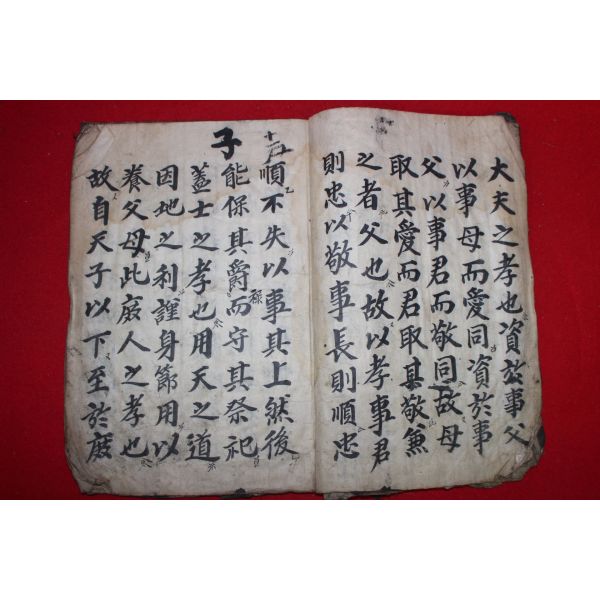 大夫之孝也資於事父
以事母而愛同資於事
父以事君而敬同故母
取其愛而君取其敬兼
之者父也故以孝事君
則忠以敬事長則順忠
順不失以事其上然後
能保其爵祿而守其祭祀
子
蓋士之孝也用天之道
因地之利謹身節用以
養父母此庶人之孝也
故自天子以下至於庶